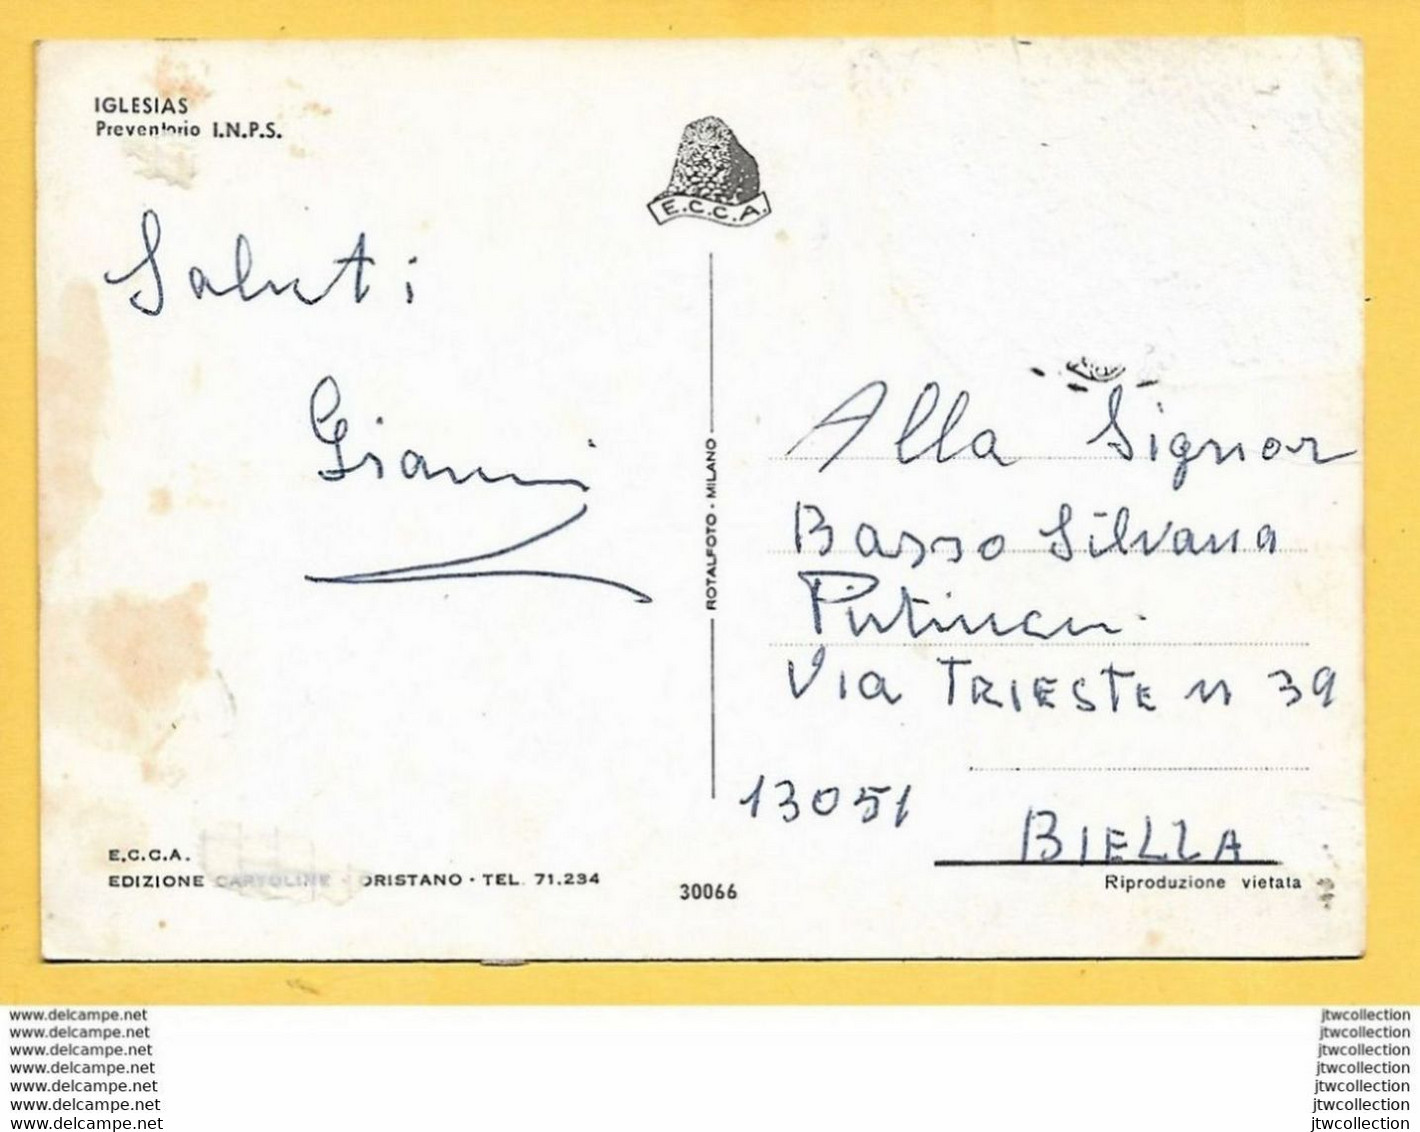 IGLESIAS
Preventorio I.N.P.S.
E.C.C.A.
Saluti
Gianni
ROTALFOTO - MILANO
Alla Signor
Basso Silvana
VIA TRIESTE N 39
13051
BIELLA
E.C.C.A.
EDIZIONE CARTOLINE - ORISTANO • TEL. 71.234
30066
Riproduzione vietata
www.delcampe.net
www.delcampe.net
www.delcampe.net
www.delcampe.net
www.delcampe.net
www.delcampe.net
www.delcampe.net
jtwcollection
jtwcollection
jtwcollection
jtwcollection
jtwcollection
jtwcollection
jtwcollection